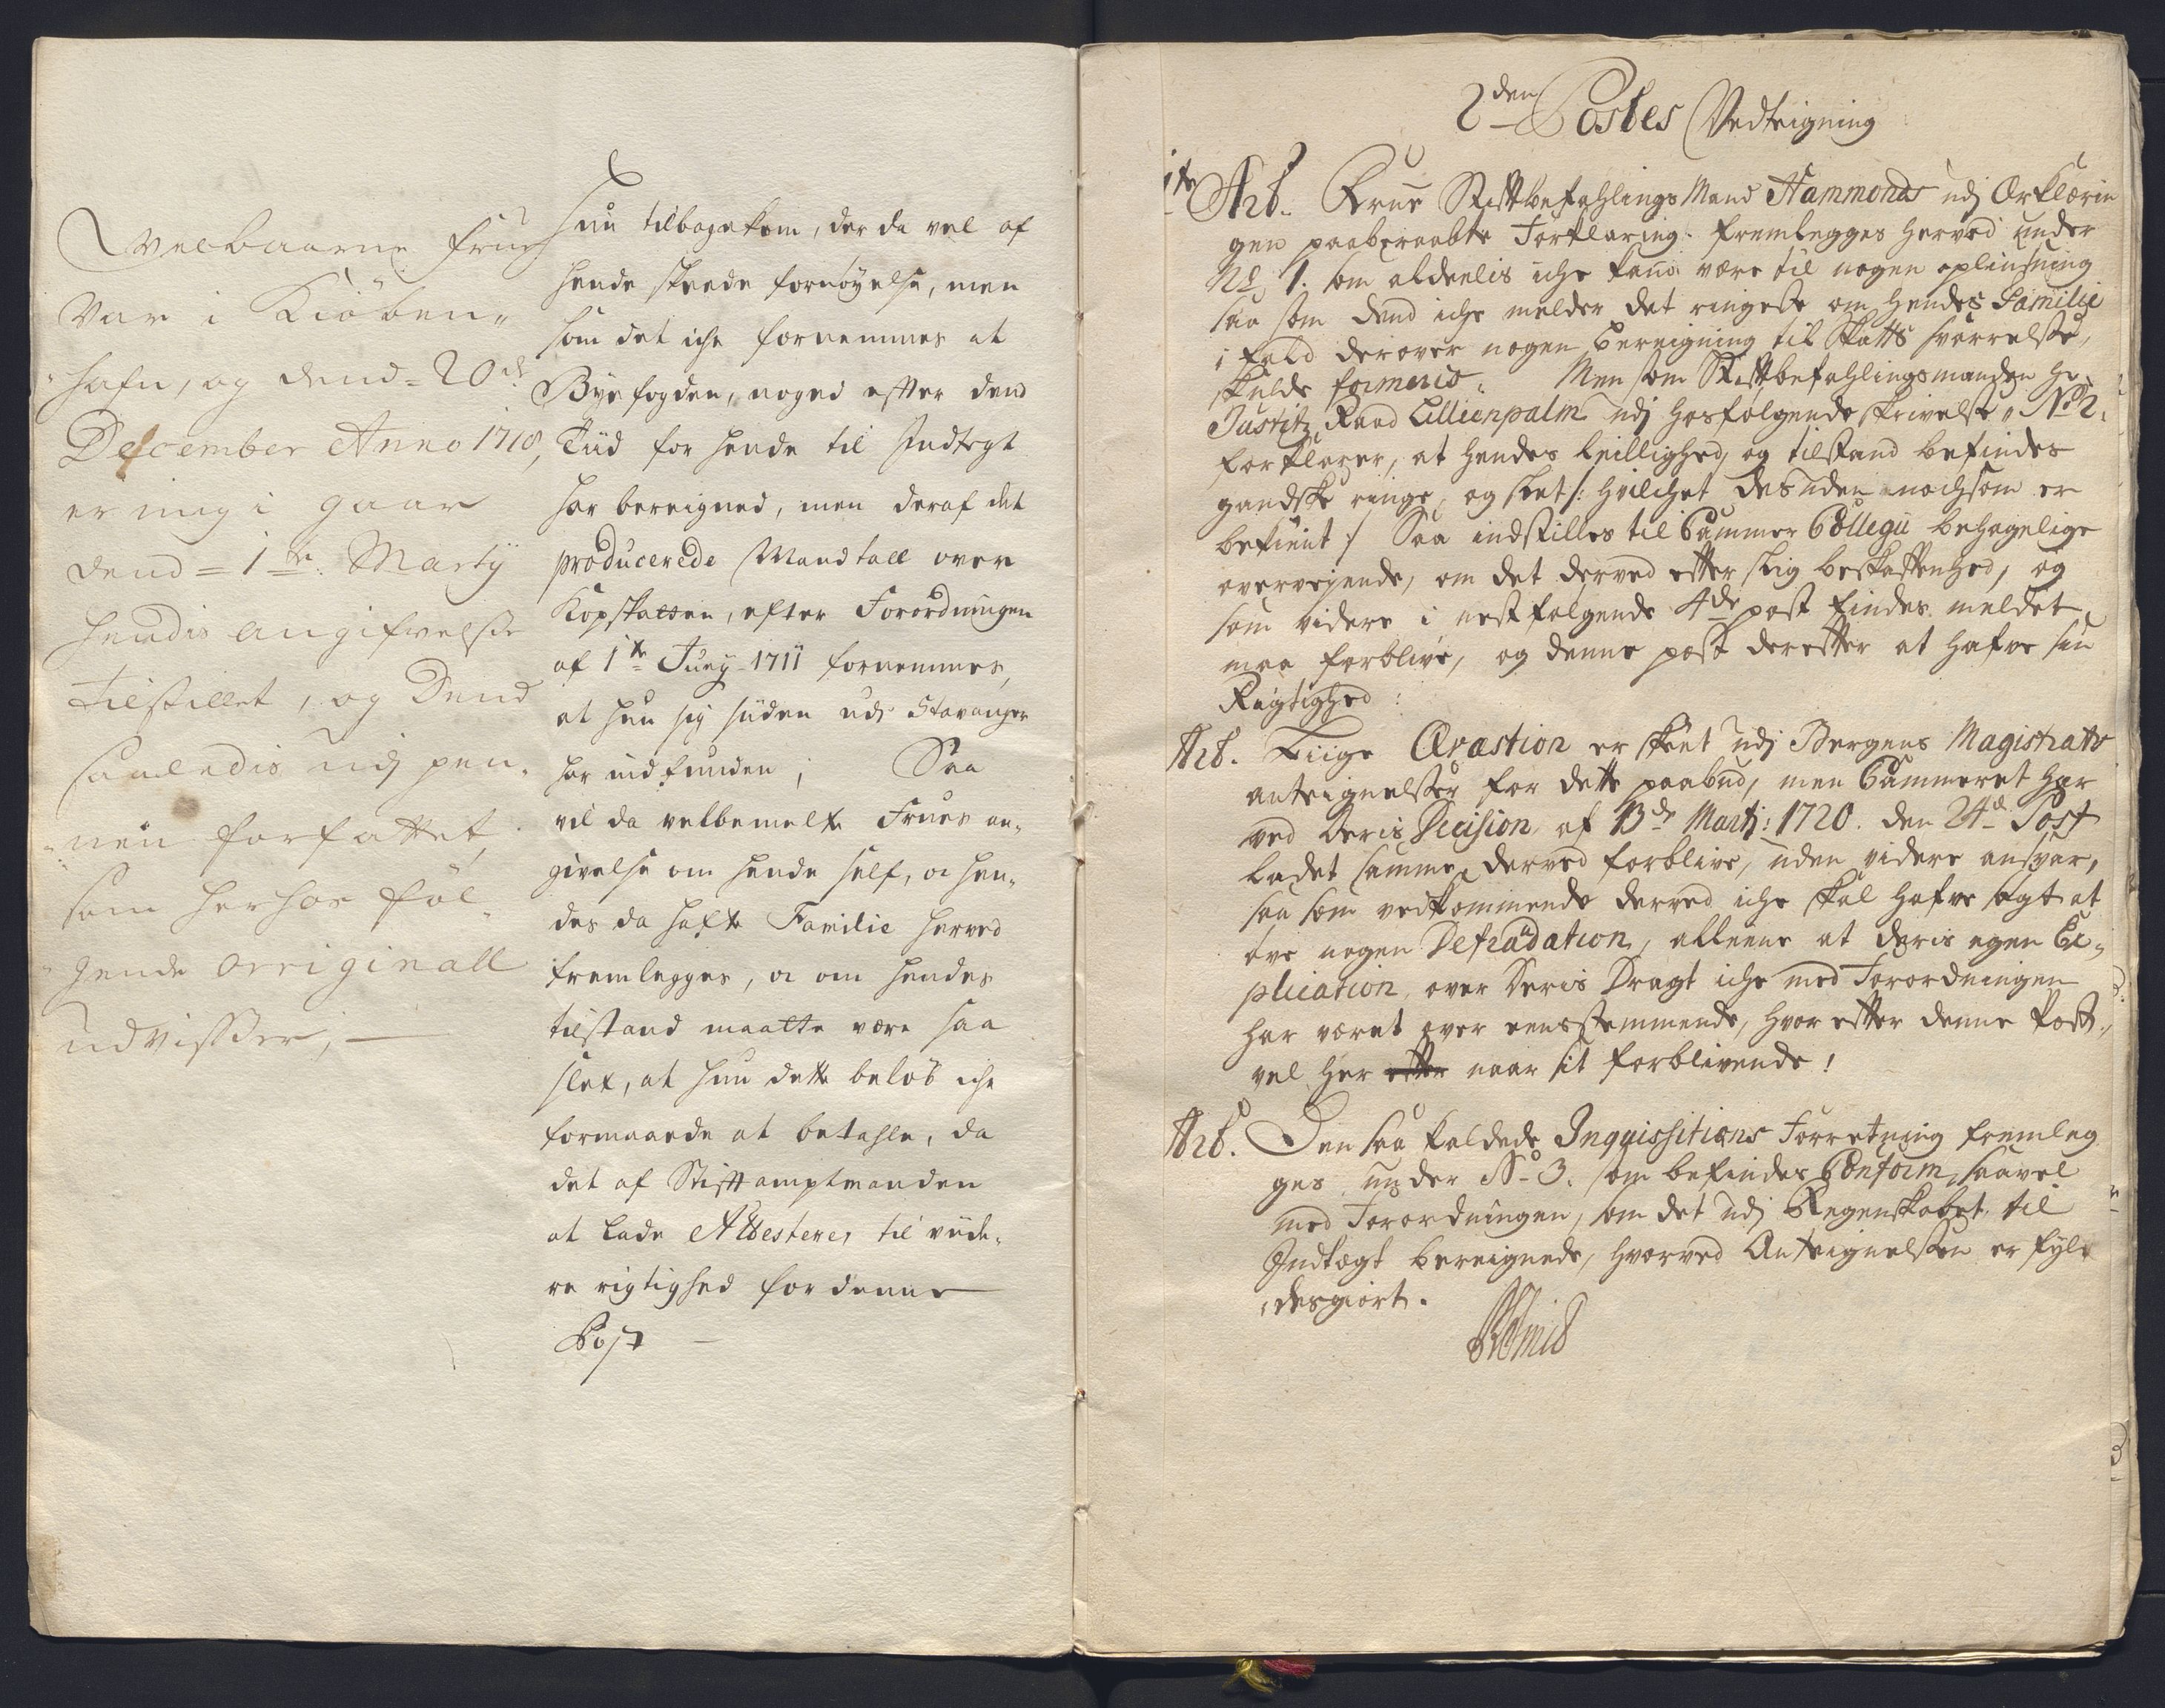 Velbaarne Frue
Var i Kiöben„
hafn, og dend 20de
December Anno 1718,
er mig i gaar
dend 1te Marty
hendis angifvelsse
tilstillet, og Dend
saaledis udj pen„
nen forfattet,
som herhos føl„
gende Orriginall
udvisser,

hun tilbagekom, der da vel af
hende skeede fornöyelse, men
som det iche fornemmes at
Byefogden, noged efter dend
Tiid for hende til Indtegt
har bereigned, men deraf det
producerede Mandtall over
Kopskatten, efter Forordningen
af 1te Juny 1711 fornemmes,
at hun sig siiden udj Stavanger
har indfunden; Saa
vil da velbemelte Frues an„
givelse om hende self, oc hen„
des da hafte Familie herved
fremlegges, oc om hendes
tilstand maatte være saa
slet, at hun dette beløb iche
formaaede at betahle, da
det af Stiftamptmanden
at lade Attestere, til viide„
re rigtighed for denne
Post

2den Postes Vedteigning
1te Art. Frue Stiftbefahlings Mand Hammonds udj Erklærin
gen paaberaabte Forklaring fremlegges herved under
No 1. som aldeelis iche kand være til nogen opliusning
saa som dend iche melder det ringeste om hendes Familie
i fald derover nogen bereigning til Skatts svarrelse,
skulde formeris. Men som Stiftbefahlingsmanden Hr.
Justitz Raad Lillienpalm udj hosfølgende skrivelse No 2.
forklarer, at hendes leillighed, og tilstand befindes
gandske ringe, og slet /: hvilchet desuden nochsom er
bekient :/ Saa indstilles til Cammer Collegii behagelige
overveyende, om det derved efter slig beskaffenhed, og
som videre i nestfølgende 4de post findes meldet
maa forblive, og denne post derefter at hafve sin
Rigtighed:
Art. Liige Qvæstion er skeet udj Bergens Magistrats
anteignelser for dette paabud, men Cammeret har
ved deris Decision af 13de Martj: 1720. den 24de Post
ladet samme derved forblive, uden videre ansvar,
saa som vedkommende derved iche skal hafve søgt at
øve nogen Defraudation, alleene at deris egen Ex„
plication over deris Dragt iche med Forordningen
har været over eensstemmende, hvor efter denne Post
vel her efter naar sit forblivende!
Art. Den saa kaldede Inqvissitions Forretning fremleg
ges under No 3. som befindes Conform, saavel
med Forordningen, som det udj Regenskabet til
Indtægt bereignede, hvorved Anteignelssen er fyl„
destgiort.